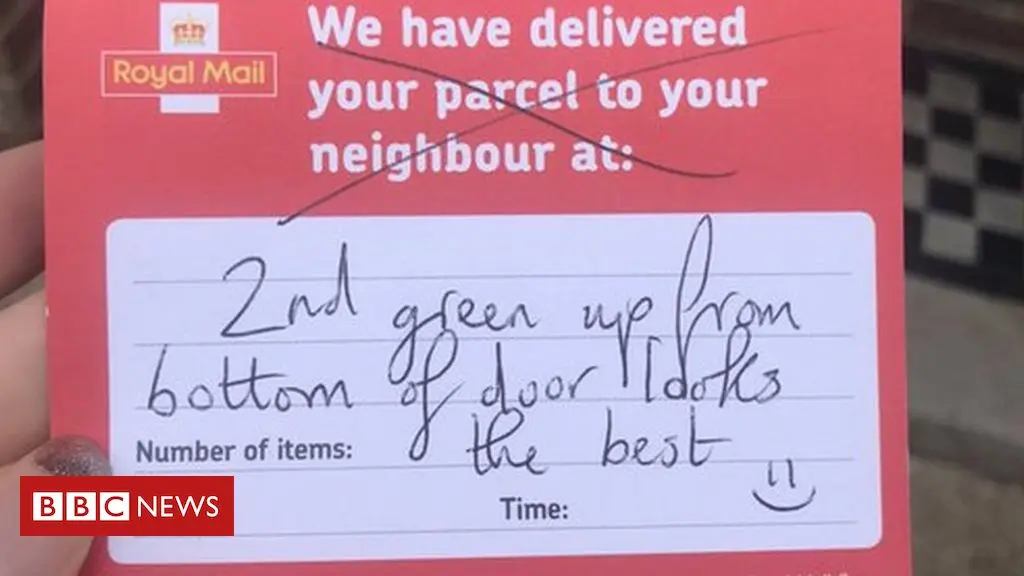 Royal Mail
We have delivered
your parcel to your
neighbour at:
2nd green up from
bottom of door looks
the best
Number of items:
Time:
BBC NEWS